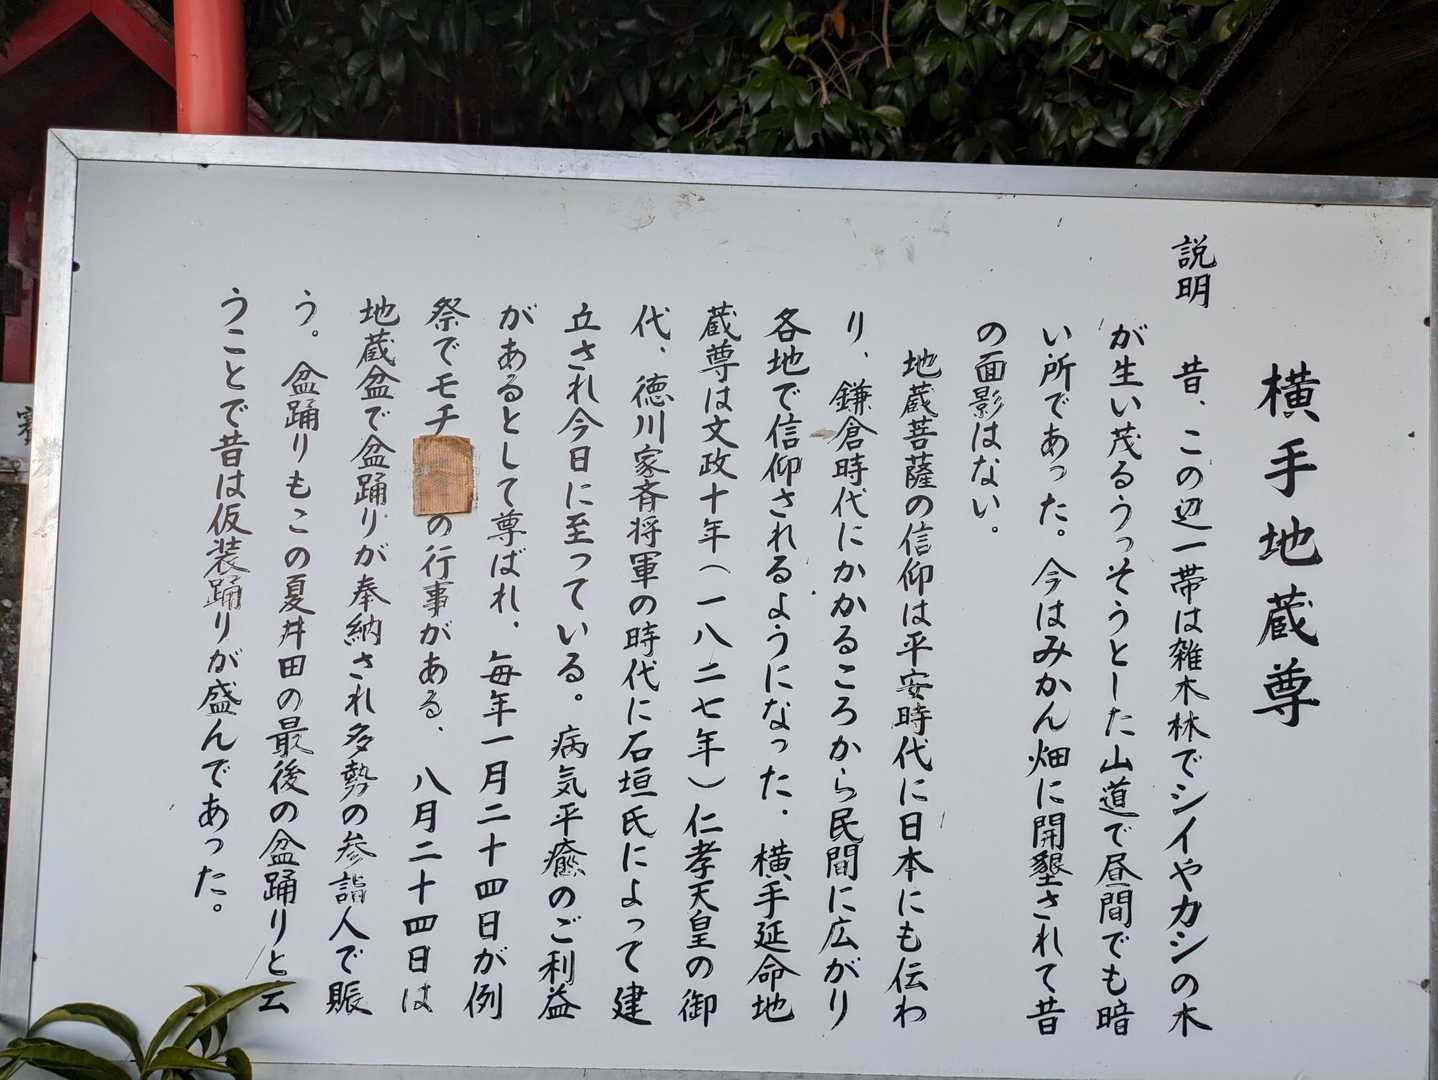 横手地蔵尊
説明
昔、この辺一帯は雑木林でシイやカシの木
が生い茂るうっそうとした山道で昼間でも暗
い所であった。今はみかん畑に開墾されて昔
の面影はない。
地蔵菩薩の信仰は平安時代に日本にも伝わ
り、鎌倉時代にかかるころから民間に広がり
各地で信仰されるようになった。横手延命地
蔵尊は文政十年(一八二七年)仁孝天皇の御
代、徳川家斉将軍の時代に石垣氏によって建
立され今日に至っている。病気平癒のご利益
があるとして尊ばれ、毎年一月二十四日が例
祭でモチの行事がある、八月二十四日は
地蔵盆で盆踊りが奉納され多勢の参詣人で賑
う。盆踊りもこの夏井田の最後の盆踊りと云
うことで昔は仮装踊りが盛んであった。